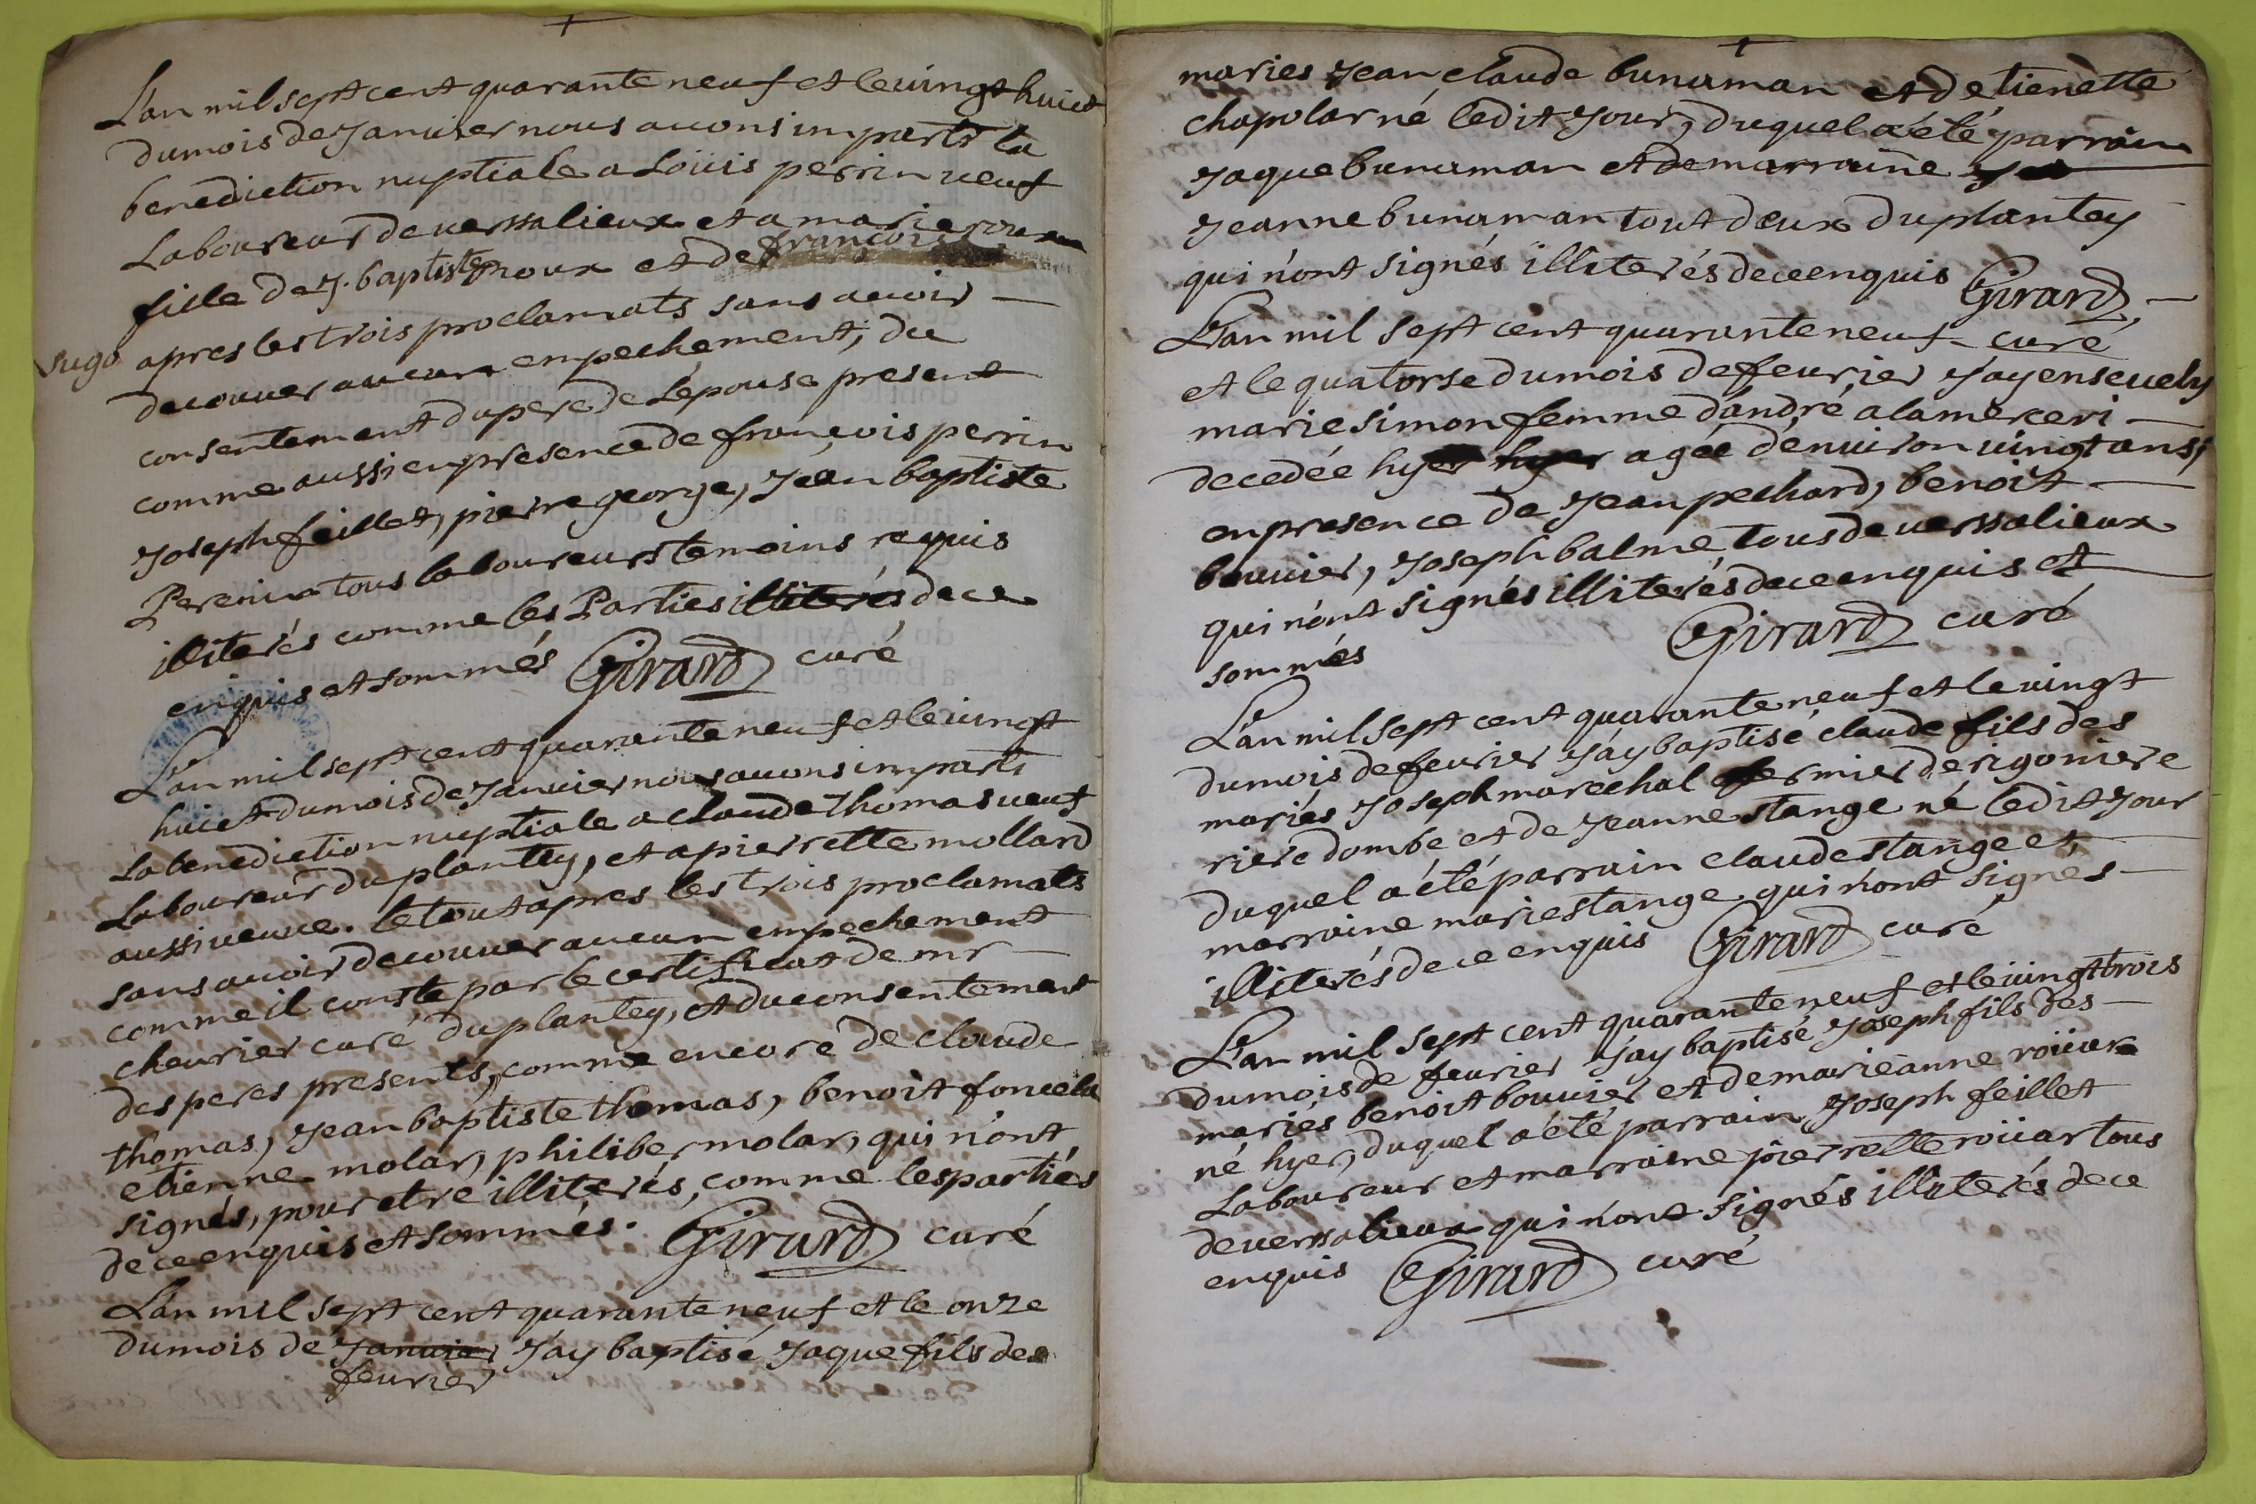 L'an mil sept cent quarante neuf et le vingt huict
du mois de Janvier nous avons imparti la
benediction nuptiale a Loüis perrin veuf
Laboureur de versalieux et a marie roux
fille de J. baptiste roux et de françoise
apres les trois proclamats sans avoir —
decouver aucun empechement, du
consentement du pere de L'epouse present
comme aussi en presence de françois perrin
Joseph feillet, pierre george, Jean baptiste
tous laboureurs temoins requis
illiterés comme les Parties illiterés de ce
enquis et sommés Girard curé
L'an mil sept cent quarante neuf et le vingt
huict du mois de Janvier nous avons imparti
La benediction nuptiale a claude thomas veuf
Laboureur du plantey, et a pierrette mollard
aussi veuve. le tout apres les trois proclamats
sans avoir decouver aucun empechement
comme il conste par le certificat de mr —
chevrier curé du plantey, et du consentement
des peres presents, comme encore de claude
thomas, Jean baptiste thomas, benoit foncela
etienne molar, philiber molar, qui n'ont
signés, pour etre illiterés, comme les parties
de ce enquis et sommés. Girard curé
L'an mil sept cent quarante neuf et le onze
du mois de Janvier J'ay baptisé Jaque fils des
fevrier
maries Jean claude bunaman et d'etienette
chapolar né ledit Jour, duquel a été parrain
Jaque bunaman et de marraine
Jeanne bunaman tout deux du plantey
qui n'ont signés illiterés de ce enquis Girard —
L'an mil sept cent quarante neuf curé
et le quatorse du mois de fevrier J'ay ensevely
marie simon femme d'andré alamerceri —
decedée hyer hyer agée d'environ vingt ans,
en presence de Jean pechard, benoit —
bouvier, Joseph balme tous de versalieux
qui n'ont signés illiterés de ce enquis et
sommés Girard curé
L'an mil sept cent quarante neuf et le vingt
du mois de fevrier J'ay baptisé claude fils des
mariés Joseph marechal fermier de rigoniere
riere dombe et de Jeanne stange né ledit Jour
duquel a été parrain claude stange et —
marraine marie stange. qui n'ont signés —
illiterés de ce enquis Girard curé
L'an mil sept cent quarante neuf et le vingt trois
du mois de fevrier J'ay baptisé Joseph fils des —
mariés benoit bouvier et de marie anne roüar
né hyer, duquel a été parrain Joseph feillet
Laboureur et marraine pierrette roüar tous
de versalieux qui n'ont signés illiterés de ce
enquis Girard curé